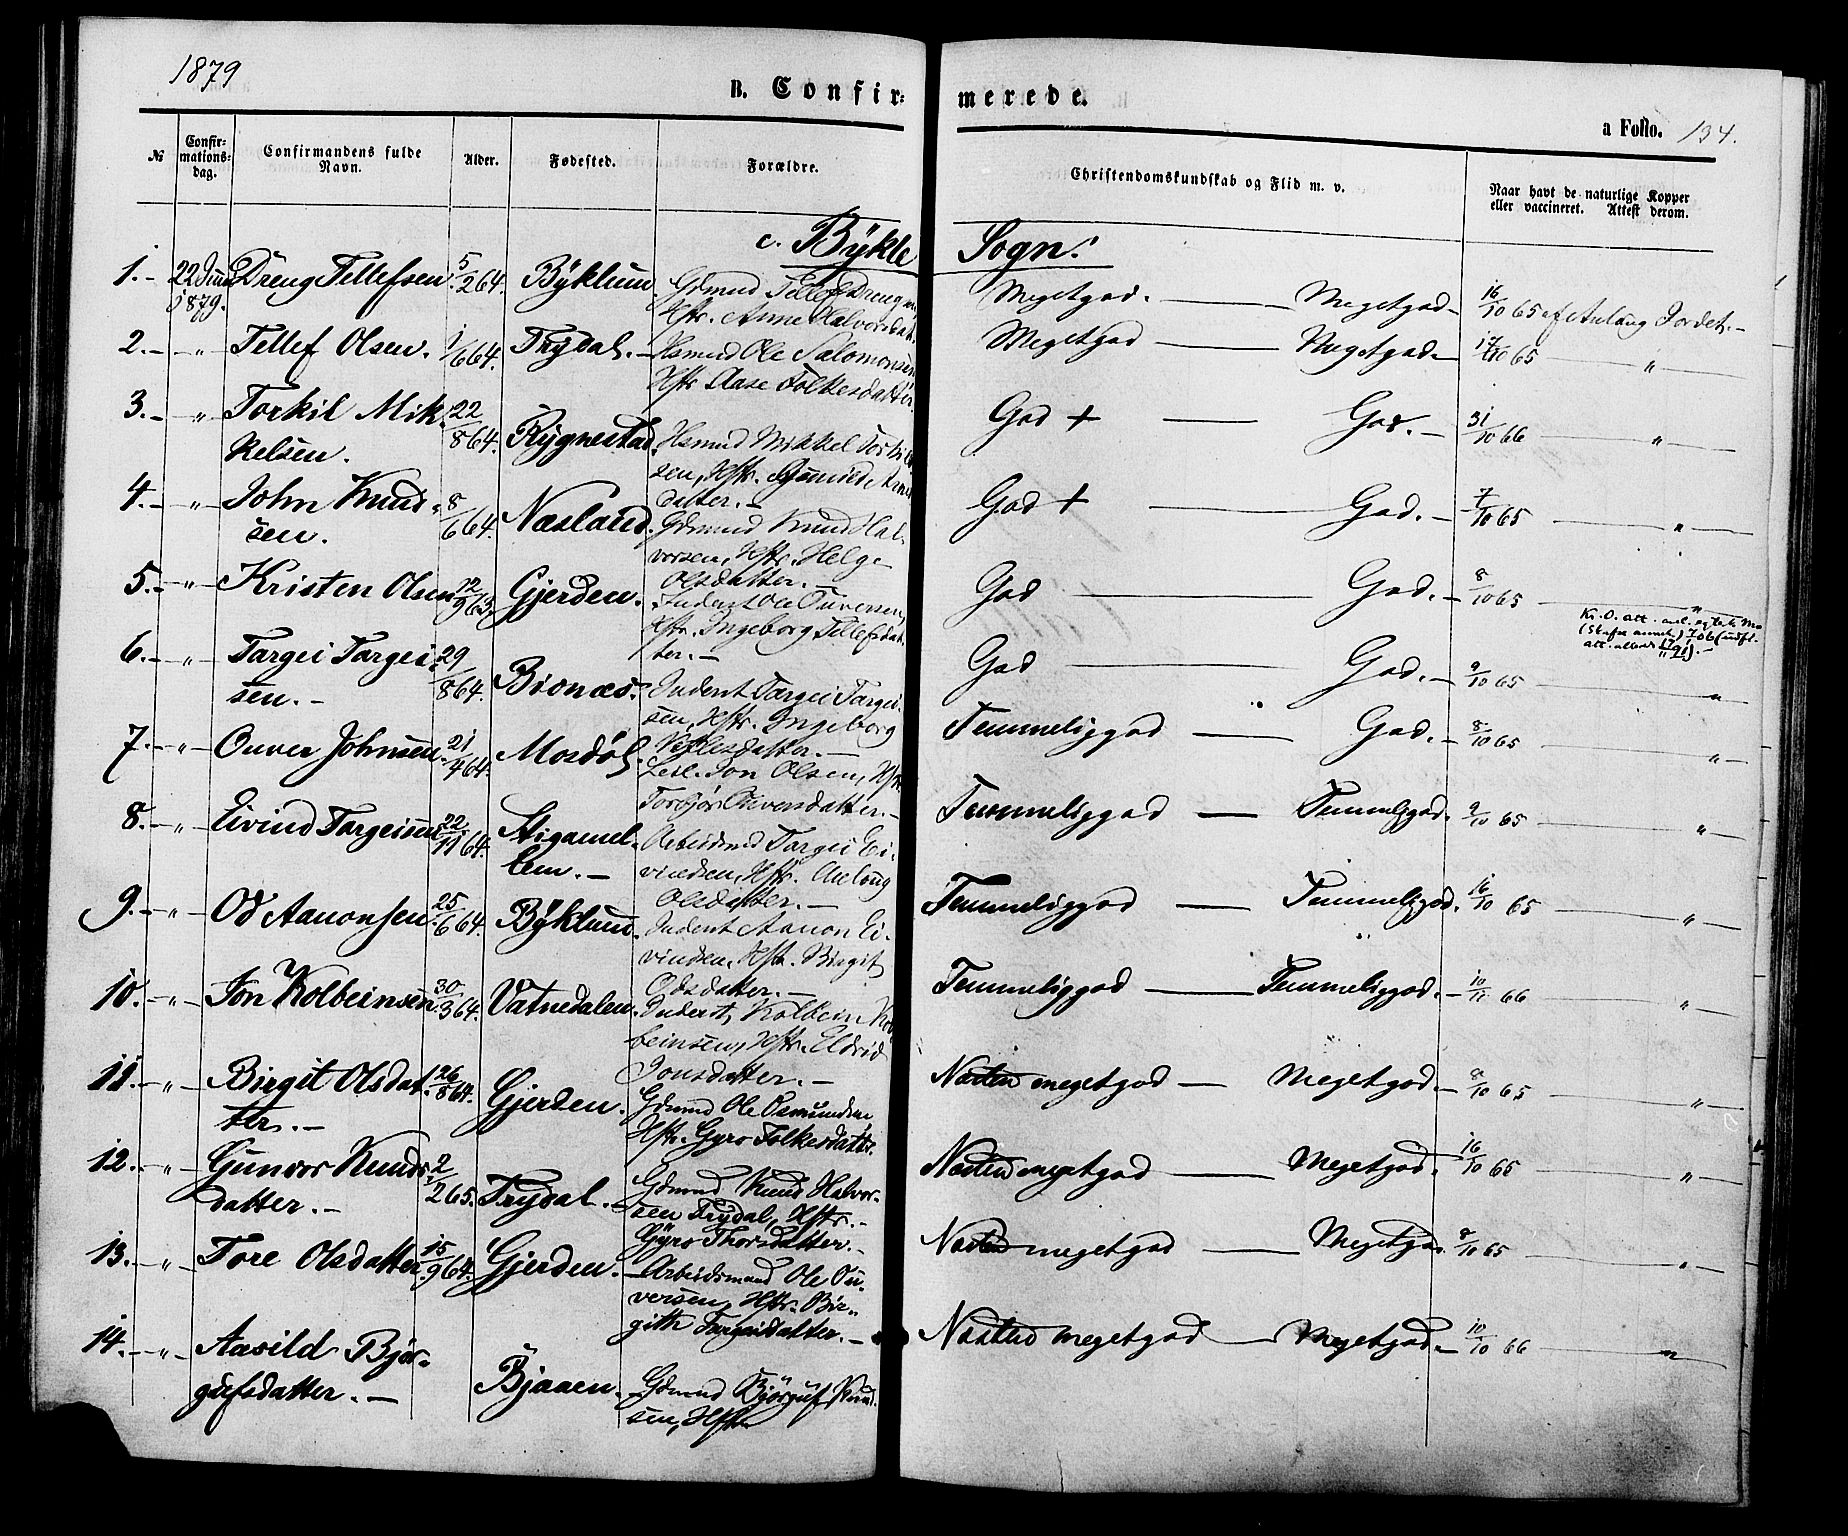 1879
B. Confir=
merede.
a Folio. 134.
№
Confir-
mations-
dag.
Confirmandens fulde
Navn.
Alder.
Fødested.
Forældre.
Christendomskundskab og Flid m. v.
Naar havt de naturlige Kopper
eller vaccineret. Attest derom.
c. Bÿkle Sogn:
1.- 22 Juni 1879. Dreng Tellefsen 5/2 64. Bÿklum Gdmnd Tellef Dreng
Hstr. Anne Halvorsdat.
Megetgod. — Megetgod - 16/10 65 af Anlaug Jordet. -
2.- - " - Tellef Olsen. 1/6 64. Trÿdal. - Hsmnd Ole Salomonsen
Hstr Aase Folkesdatter
Megetgod — Megetgod - 17/10 65 — " —
3.- " - Torkil Mik-
kelsen. 22/8 64. Rÿgnestad. Hsmnd Mikkel Torkil
sen, Hstr. Gunild
datter. -
God + — God. - 31/10 66 — " —
4.- - " - John Knud-
sen. 8/6 64. Næsland. Gdmnd Knud Hal-
vorsen, Hstr. Helge
Olsdatter. -
God + — God. - 7/10 65 — " —
5.- - " - Kristen Olsen 12/9 63. Gjerden. Inderst Ole Ouversen,
Hstr. Ingeborg Tellefsdat
ter. -
God — God. - 8/10 65 — " —
Kr. O. att.
6.- - " - Targei Targei-
sen. - 29/8 64. Bionæs. Inderst Targei Targei-
sen, Hstr. Ingeborg
Vetlesdatter. -
God — God. - 9/10 65 — " —
7.- - " - Ouver Johnsen 21/4 64. Mosdøl. Leil. Jon Olsen, Hstr
Torbjør Ouversdatter. -
Temmeliggod — God. - 8/10 65 — " —
8.- - " - Eivind Targeisen 22/11 64. Stigamel-
lem. - Arbeidsmd Targei Ei-
vindsen, Hstr. Anlaug
Olsdatter. -
Temmeliggod — Temmeliggod. 9/10 65 — " —
9.- - " - Od Aanonsen 25/6 64. Bÿklum. Inderst Aanon Ei-
vindsen, Hstr. Birgit
Odsdatter. -
Temmeliggod — Temmeliggod. 16/10 65 — " —
10.- - " - Jon Kolbeinsen 30/3 64. Vatnedalen. Inderst, Kolbein Kol
beinsen, Hstr. Eldrid
Jonsdatter. -
Temmeliggod — Temmeliggod. - 10/11 66 — " —
11.- - " - Birgit Olsdat-
ter. - 26/8 64. Gjerden. Gdmnd Ole Osmundsen
Hstr. Gyro Folkesdatter.
Næsten megetgod — Megetgod - 8/10 65 — " —
12.- - " - Gunvor Knuds-
datter. - 2/2 65. Trÿdal. - Gdmnd Knud Halvor-
sen Trÿdal, Hstr. -
Gÿro Thorsdatter. -
Næsten megetgod — Megetgod. 16/10 65 — " —
13.- - " - Tore Olsdatter 15/9 64. Gjerden. - Arbeidsmand Ole Ou-
versen, Hstr. Bir-
gith Targeisdatter. -
Næsten megetgod — Megetgod. 8/10 65 — " —
14.- - " - Aasild Bjør-
gufsdatter. - Bjaaen. - Gdmnd Bjørguf Knud
sen, Hstr
Næsten megetgod — Megetgod. - 10/10 66 — " —